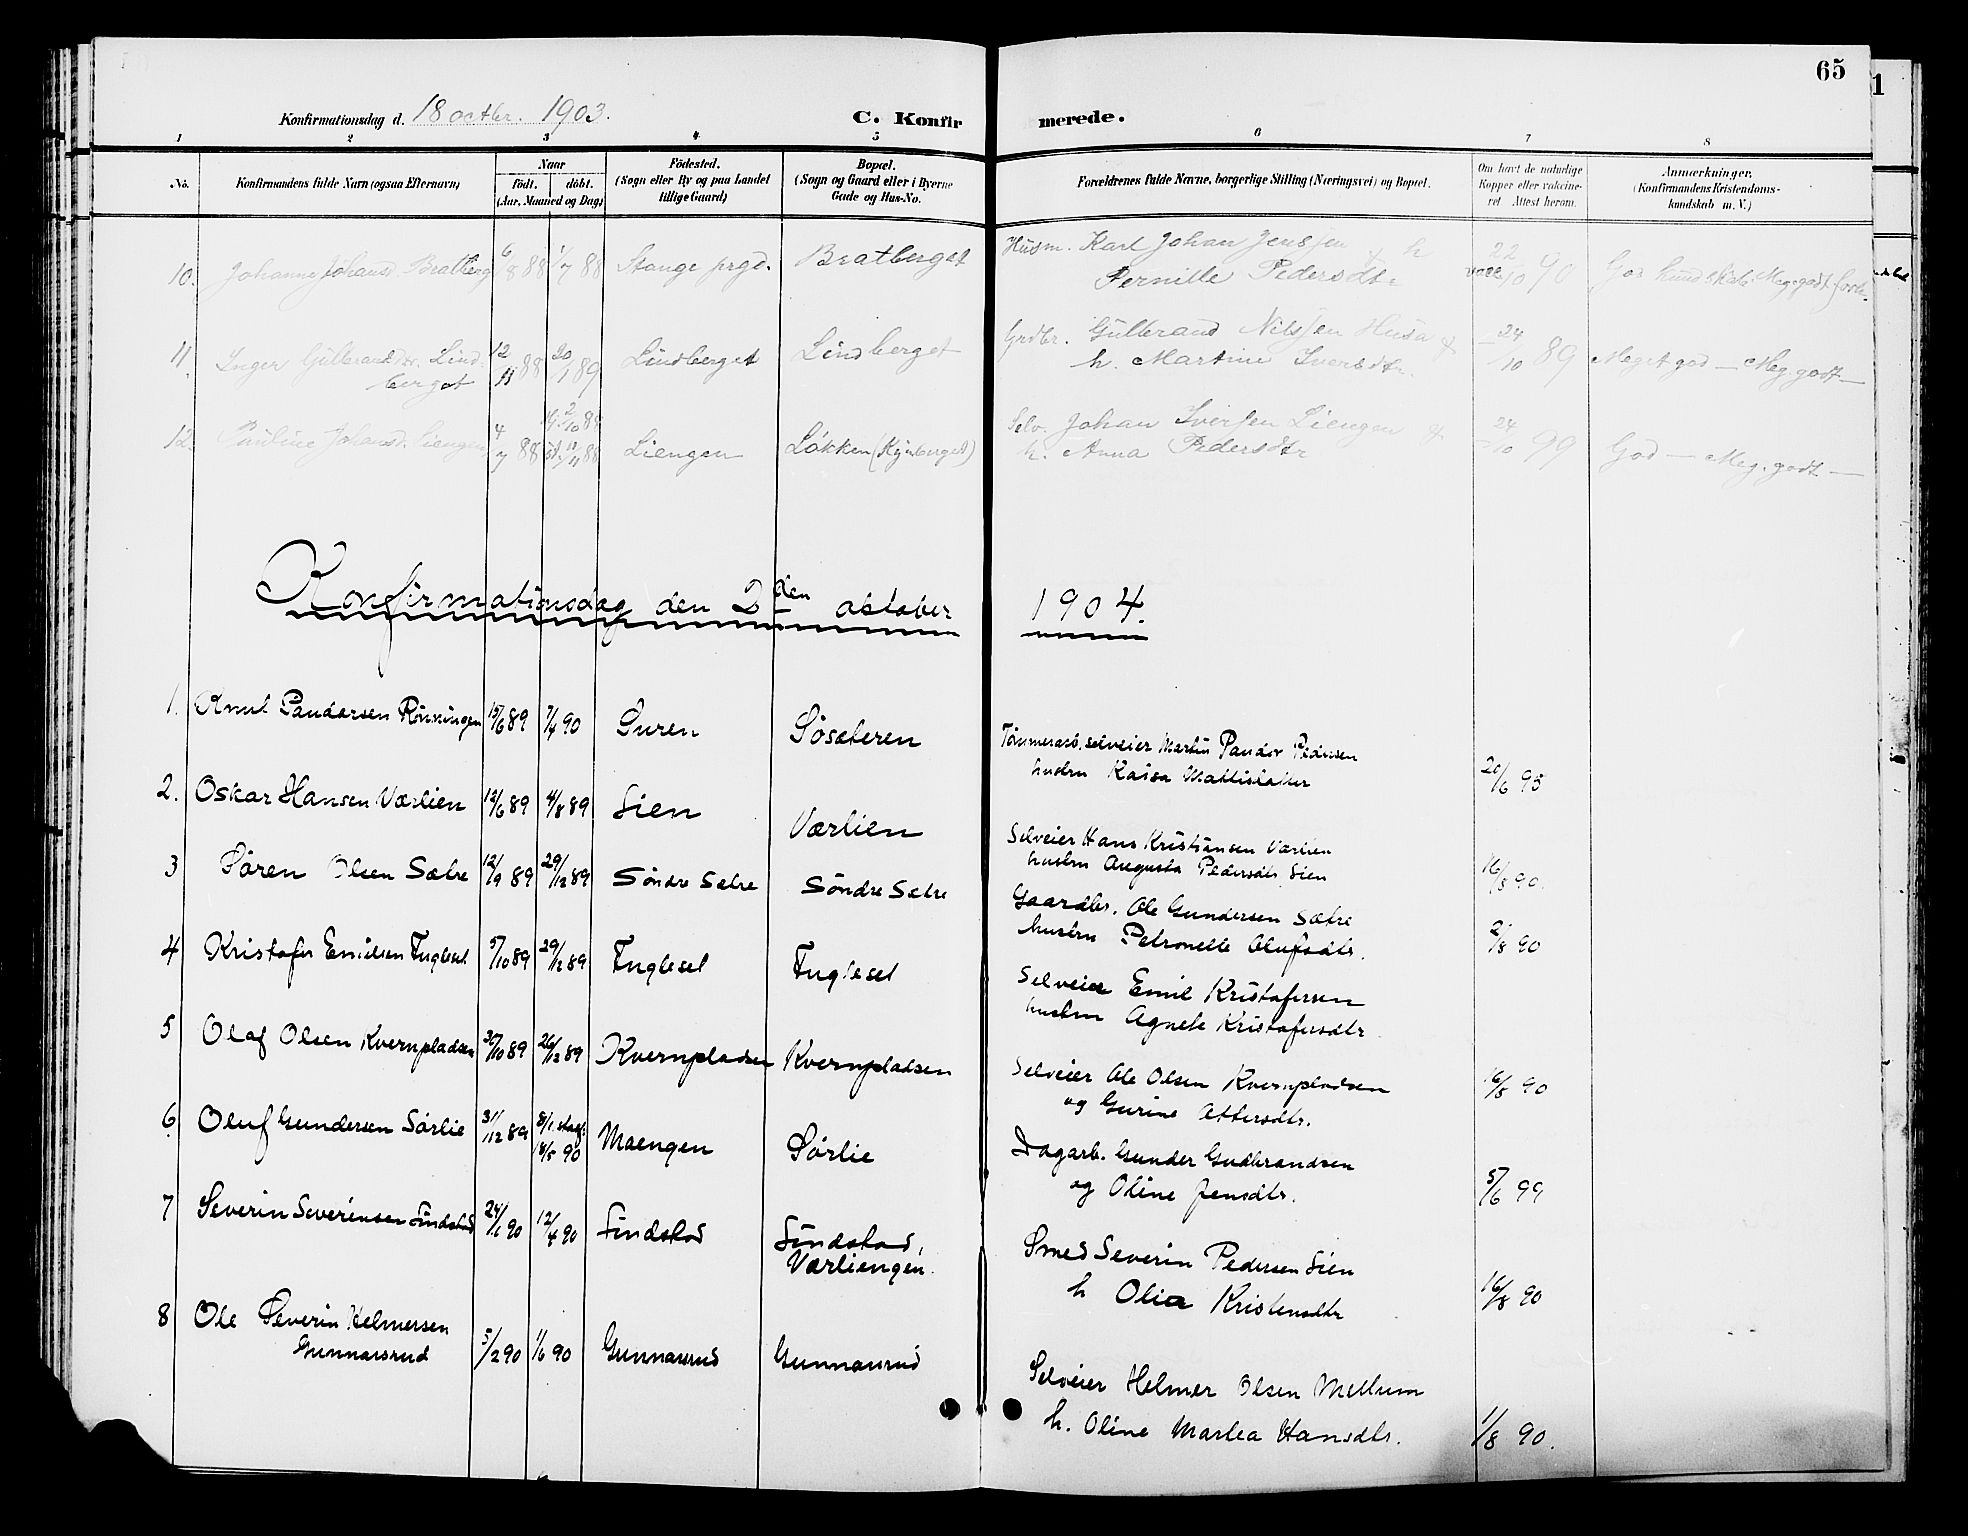 65
Konfirmationsdag d. 18 octbr. 1903. C. Konfirmerede.
1 2 3 4 5 6 7 8
No. Konfirmandens fulde Navn (ogsaa Efternavn) Naar født. døbt. (Aar, Maaned og Dag) Fødested. (Sogn eller By og paa Landet tillige Gaard) Bopæl. (Sogn og Gaard eller i Byerne Gade og Hus-No. Forældrenes fulde Navne, borgerlige Stilling (Næringsvei) og Bopæl. Om havt de naturlige Kopper eller vaccineret Attest herom. Anmærkninger. (Konfirmandens Kristendomskundskab m. V.)
10. Johanne Johansd. Bratberg 6/8 88 1/7 88 Stange prgd. Bratberget Husm. Karl Johan Jensen & h
Pernille Pedersdtr. vacc 22/10 90 God kundskab. Meg. godt forh.
11. Inger Gulbrandsdr. Lindberget 12/11 88 20/1 89 Lindberget Lindberget Grdbr. Gulbrand Nilsen Husa &
h. Martine Iversdtr. 24/10 89 Meget god — Meg. godt —
12. Pauline Johansd. Liengen 4/7 88 2/10 88 11/11 88 Liengen Løkken (Kynberget) Selv. Johan Iversen Liengen &
h. Anna Pedersdtr 24/10 99 God — Meg. godt —
Konfirmationsdag den 2den oktober 1904.
1. Knut Pandersen Rønningen 15/6 89 7/4 90 Guren Søsæteren Tømmerarb, selveier Martin Pander Pedersen
hustru Kaisa Mattisdatter 20/6 95
2. Oskar Hansen Værlien 12/6 89 4/8 89 Lien Værlien Selveier Hans Kristiansen Værlien
hustru Augusta Pedersdtr Lien 16/5 90.
3 Søren Olsen Sætre 12/9 89 29/12 89 Søndre Sætre Søndre Sætre Gaardbr. Ole Gundersen Sætre
hustru Petronelle Olufsdtr. 2/8 90
4 Kristofer Emilsen Fuglset 5/10 89 29/12 89 Fugleset Fugleset Selveier Emil Kristofersen
hustru Agnete Kristofersdtr.
5 Olaf Olsen Kvernpladsen 30/10 89 26/12 89 Kvernpladsen Kvernpladsen Selveier Ole Olsen Kvernpladsen
og Gurine Ottersdtr. 16/5 90
6. Oluf Gundersen Sørlie 31/12 89 8/1 stadf. 18/5 90 Moengen Sørlie Dagarb. Gunder Gudbrandsen
og Oline Jensdtr. 5/6 99
7 Severin Severinsen Lindstad 24/1 90 12/4 90 Lindstad Lindstad, Værliengen. Smed Severin Pedersen Lien
h Olia Kristensdtr 16/8 90
8 Ole Severin Helmersen Gunnarsrud 5/2 90 1/6 90 Gunnarsrud Gunnarsrud Selveier Helmer Olsen Mellum
h. Oline Martea Hansdtr. 1/8 90.